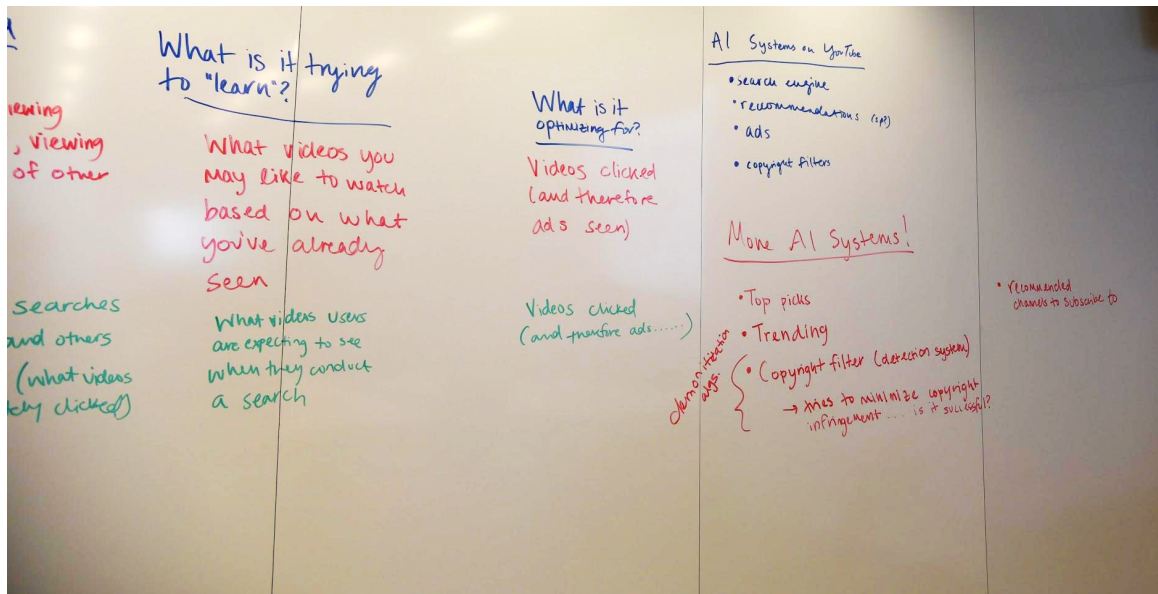 iewing
, viewing
of other
searches
and others
(what videos
clicked)
What is it trying
to "learn"?
What videos you
may like to watch
based on what
you've already
seen
What videos users
are expecting to see
when they conduct
a search
What is it
optimizing for?
Videos clicked
(and therefore
ads seen)
Videos clicked
(and therefore ads......)
AI Systems on YouTube
• search engine
• recommendations (sp?)
• ads
• copyright filters
More AI Systems!
• Top picks
• Trending
• Copyright filter (detection system)
→ tries to minimize copyright
infringement.... is it successful?
demonitization
algs.
• recommended
channels to subscribe to